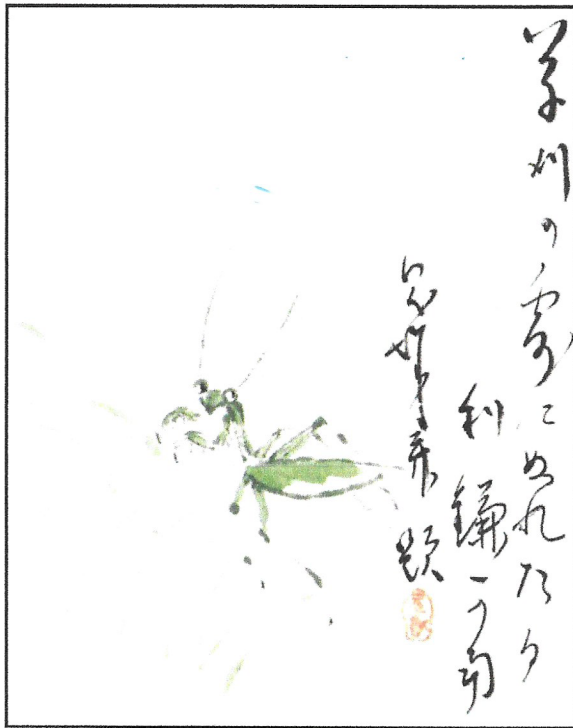 草刈の露にぬれたる
利鎌可南
題